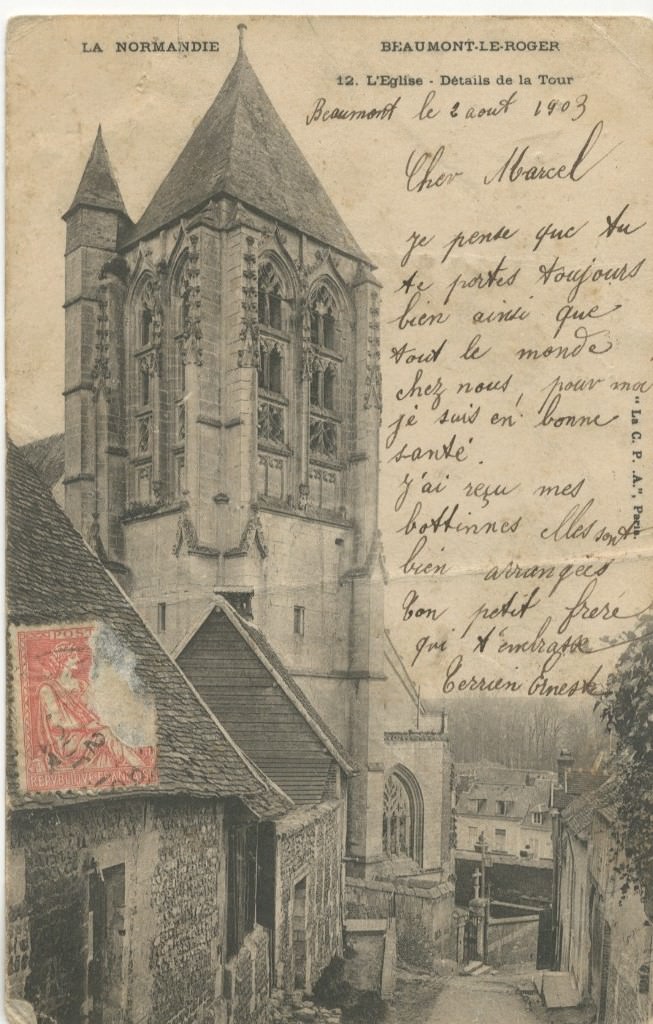 LA NORMANDIE
BEAUMONT-LE-ROGER
12. L'Eglise - Détails de la Tour
Beaumont le 2 aout 1903
Cher Marcel
je pense que tu
te portes toujours
bien ainsi que
tout le monde
chez nous, pour moi
je suis en bonne
santé.
J'ai reçu mes
bottinnes elles sont
bien arrangées
Ton petit frere
qui t'embrasse
Terrien Ernest
"La C. P. A.", Paris
POST
REPUBLIQUE FRAN